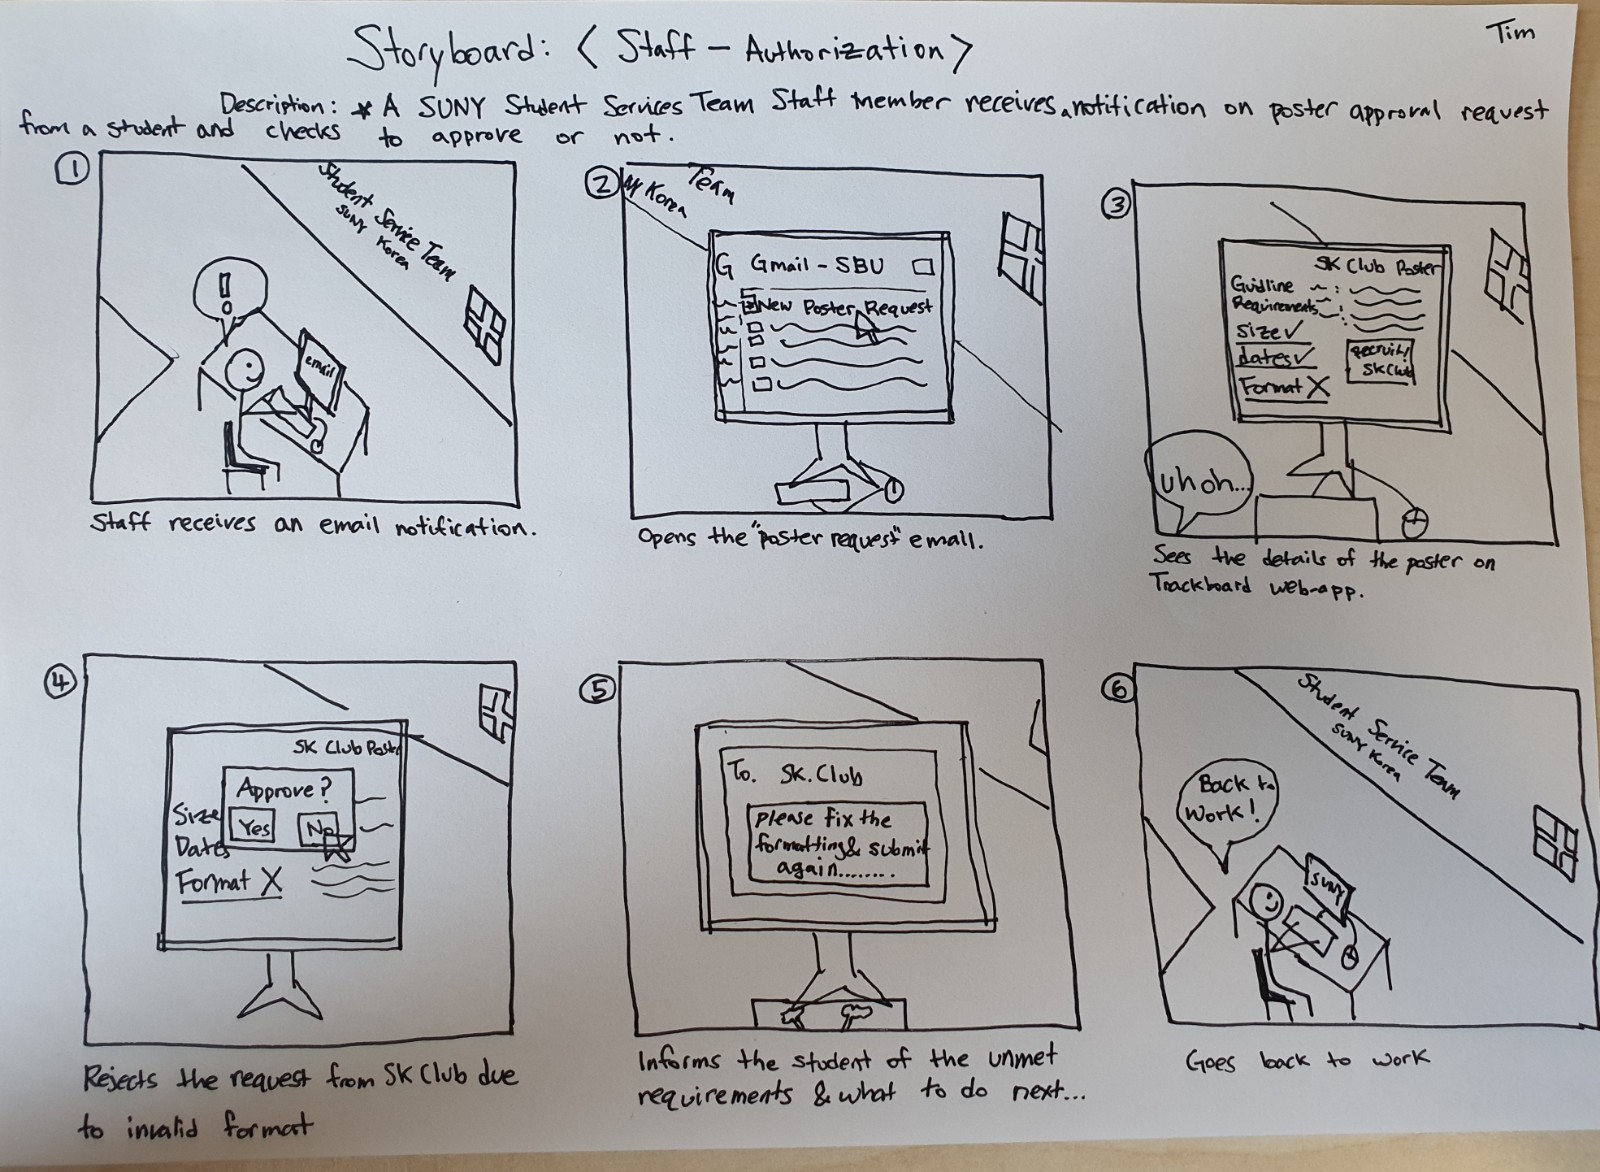 Tim
Storyboard: < Staff - Authorization >
Description: * A SUNY Student Services Team Staff member receives a notification on poster approval request
from a student and checks to approve or not.
1
Student Service Team
SUNY Korea
!
email
Staff receives an email notification.
2
Team
NY Korea
G Gmail - SBU
New Poster Request
Opens the "poster request" email.
3
SK Club Poster
Guidline
Requirements
Size ✓
dates ✓
Format X
Recruit!
SK Club
uh oh...
Sees the details of the poster on
Trackboard web-app.
4
SK Club Poster
Approve?
Yes No
Size
Dates
Format X
Rejects the request from SK Club due
to invalid format
5
To. SK.Club
Please fix the
formatting & submit
again........
Informs the student of the unmet
requirements & what to do next...
6
Student Service Team
SUNY Korea
Back to
work!
SUNY
Goes back to work